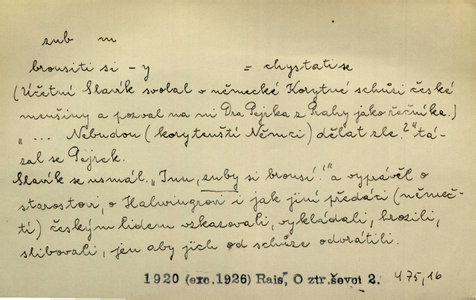 zub m
brousiti si -y = chystati se
(Účetní Slavík svolal v německé Korytné schůzi české
menšiny a pozval na ni Dra Pejrka z Prahy jako řečníka.)
"... Nebudou (korytenští Němci) dělat zle?" tá-
zal se Pejrek.
Slavík se usmál. "Inu, zuby si brousí!" a vyprávěl o
starostovi, o Halwingrovi i jak jiní předáci (němeč-
tí) českým lidem vzkazovali, vykládali, hrozili,
slibovali, jen aby jich od schůze odvrátili.
1920 (exc.1926) Rais, O ztr.ševci 2. 475,16